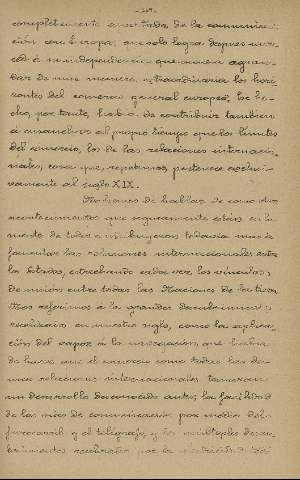 completamente apartada de la comunica-
ción con Europa, que solo logra despues mer-
ced á su independencia que vienen agran-
dar de una manera extraordinaria los hori-
zontes del comercio general europeo, los he-
cho, por tanto, habia de contribuir tambien
á ensanchar al propio tiempo que los límites
del comercio, los de las relaciones internacio-
nales, cosa que, repetimos, pertenece exclusi-
vamente al siglo XIX.
Hemos de hablar de como dos
acontecimientos que seguramente están en la
mente de todos contribuyeron todavia mas á
fomentar las relaciones internacionales entre
los Estados, estrechando cada vez los vínculos
de union entre todas las Naciones de la tierra.
Nos referimos á los grandes descubrimientos
realizados en nuestro siglo, como la aplica-
ción del vapor á la navegación, que habia
de hacer que el comercio como todas las de-
mas relaciones internacionales tomaran
un desarrollo desconocido antes; la facilidad
de las vias de comunicación por medio del
ferrocarril y el telégrafo, y los múltiples descu-
brimientos realizados por la electricidad